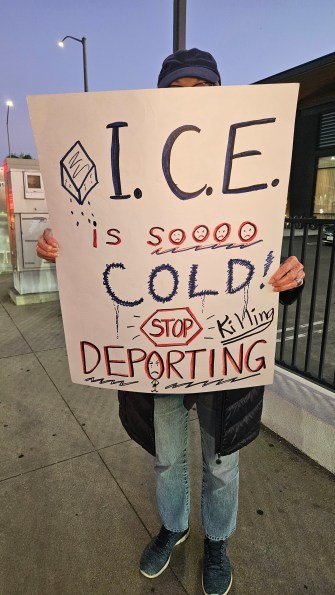 I.C.E.
is SOOOO
COLD!
STOP
Killing
DEPORTING